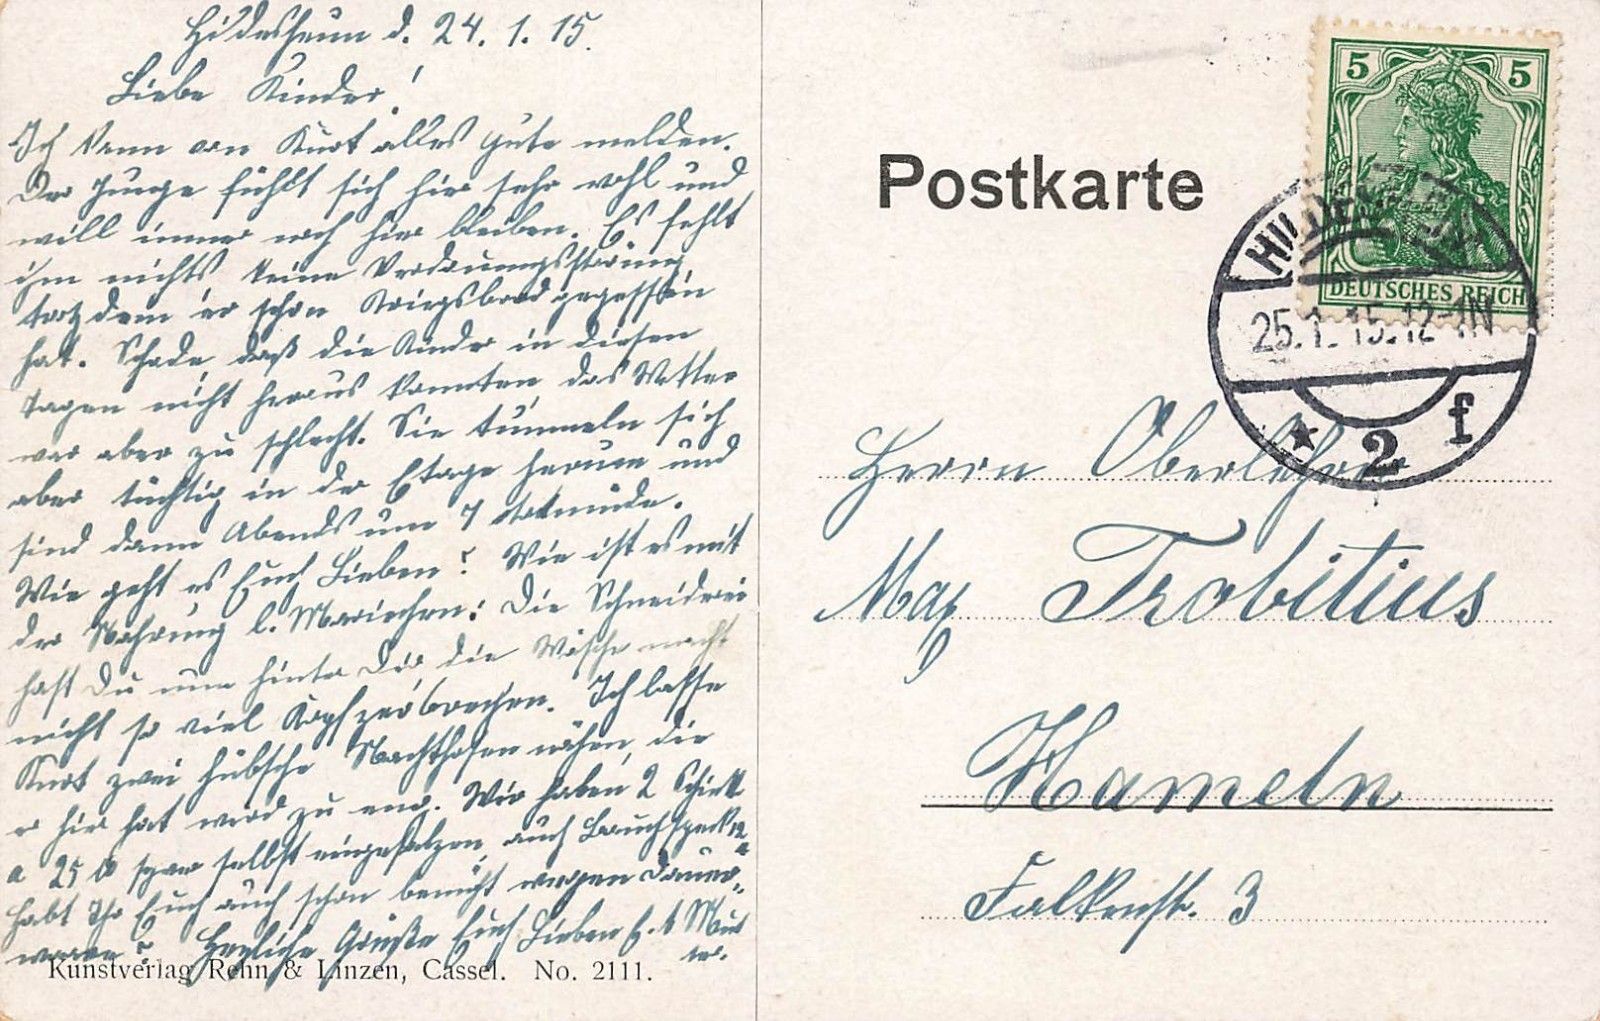 Hildesheim d. 24. 1. 15.
Liebe Kinder!
Ich kann von Kurt alles gute melden.
Der Junge fühlt sich hier sehr wohl und
will immer noch hier bleiben. Es fehlt
ihm nichts keine Verdauungsstörung
trotzdem er schon Kriegsbrod gegessen
hat. Schade, daß die Kinder in diesen
Tagen nicht heraus konnten, das Wetter
war aber zu schlecht. Sie tummeln sich
aber tüchtig in der Etage herum und
sind dann Abends um 7 todmüde.
Wie geht es Euch Lieben? Wie ist es mit
der Nahrung l. Mariechen? Die Schneiderei
hast Du nun hinter Dir die Wäsche macht
nicht so viel Kopfzerbrechen. Ich lasse
Kurt zwei hübsche Nachthosen nähen, die
er hier hat wird zu eng. Wir haben 2 Schink
a 25 ℔ selbst eingesalzen, auch Bauchspeck
habt Ihr Euch auch schon bemüht wegen Dauer-
waare? Herzliche Grüße Euch Lieben E. t Mut
ter.
Kunstverlag Rehn & Linzen, Cassel. No. 2111.
Postkarte
5 5
DEUTSCHES REICH
HILDESHEIM
25.1.15.12-1N
* 2 f
Herrn Oberlehrer
Max Trobitius
Hameln
Falkenstr. 3